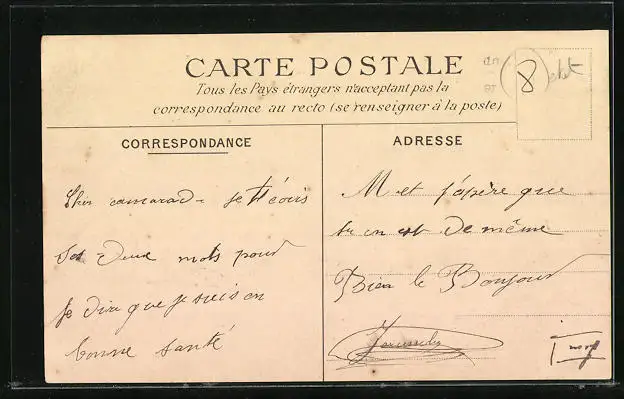 CARTE POSTALE
Tous les Pays étrangers n'acceptant pas la
correspondance au recto (se renseigner à la poste)
8
CORRESPONDANCE
ADRESSE
Cher camarad je t'écris
set deux mots pour
te dire que je suis en
bonne santé
M et j'apère que
tu en et de même
Bien le Bonjour